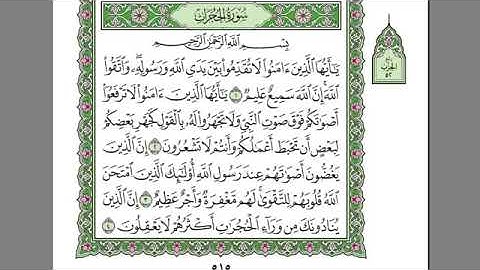 سُورَةُ الْحُجُرَاتِ
بِسْمِ اللَّهِ الرَّحْمَٰنِ الرَّحِيمِ
يَٰٓأَيُّهَا الَّذِينَ ءَامَنُوا۟ لَا تُقَدِّمُوا۟ بَيْنَ يَدَىِ اللَّهِ وَرَسُولِهِۦ ۖ وَاتَّقُوا۟
اللَّهَ ۚ إِنَّ اللَّهَ سَمِيعٌ عَلِيمٌ ١ يَٰٓأَيُّهَا الَّذِينَ ءَامَنُوا۟ لَا تَرْفَعُوٓا۟
أَصْوَٰتَكُمْ فَوْقَ صَوْتِ النَّبِىِّ وَلَا تَجْهَرُوا۟ لَهُۥ بِالْقَوْلِ كَجَهْرِ بَعْضِكُمْ
لِبَعْضٍ أَن تَحْبَطَ أَعْمَٰلُكُمْ وَأَنتُمْ لَا تَشْعُرُونَ ٢ إِنَّ الَّذِينَ
يَغُضُّونَ أَصْوَٰتَهُمْ عِندَ رَسُولِ اللَّهِ أُو۟لَٰٓئِكَ الَّذِينَ امْتَحَنَ
اللَّهُ قُلُوبَهُمْ لِلتَّقْوَىٰ ۚ لَهُم مَّغْفِرَةٌ وَأَجْرٌ عَظِيمٌ ٣ إِنَّ الَّذِينَ
يُنَادُونَكَ مِن وَرَآءِ الْحُجُرَٰتِ أَكْثَرُهُمْ لَا يَعْقِلُونَ ٤
الحزب
٥٢
٥١٥